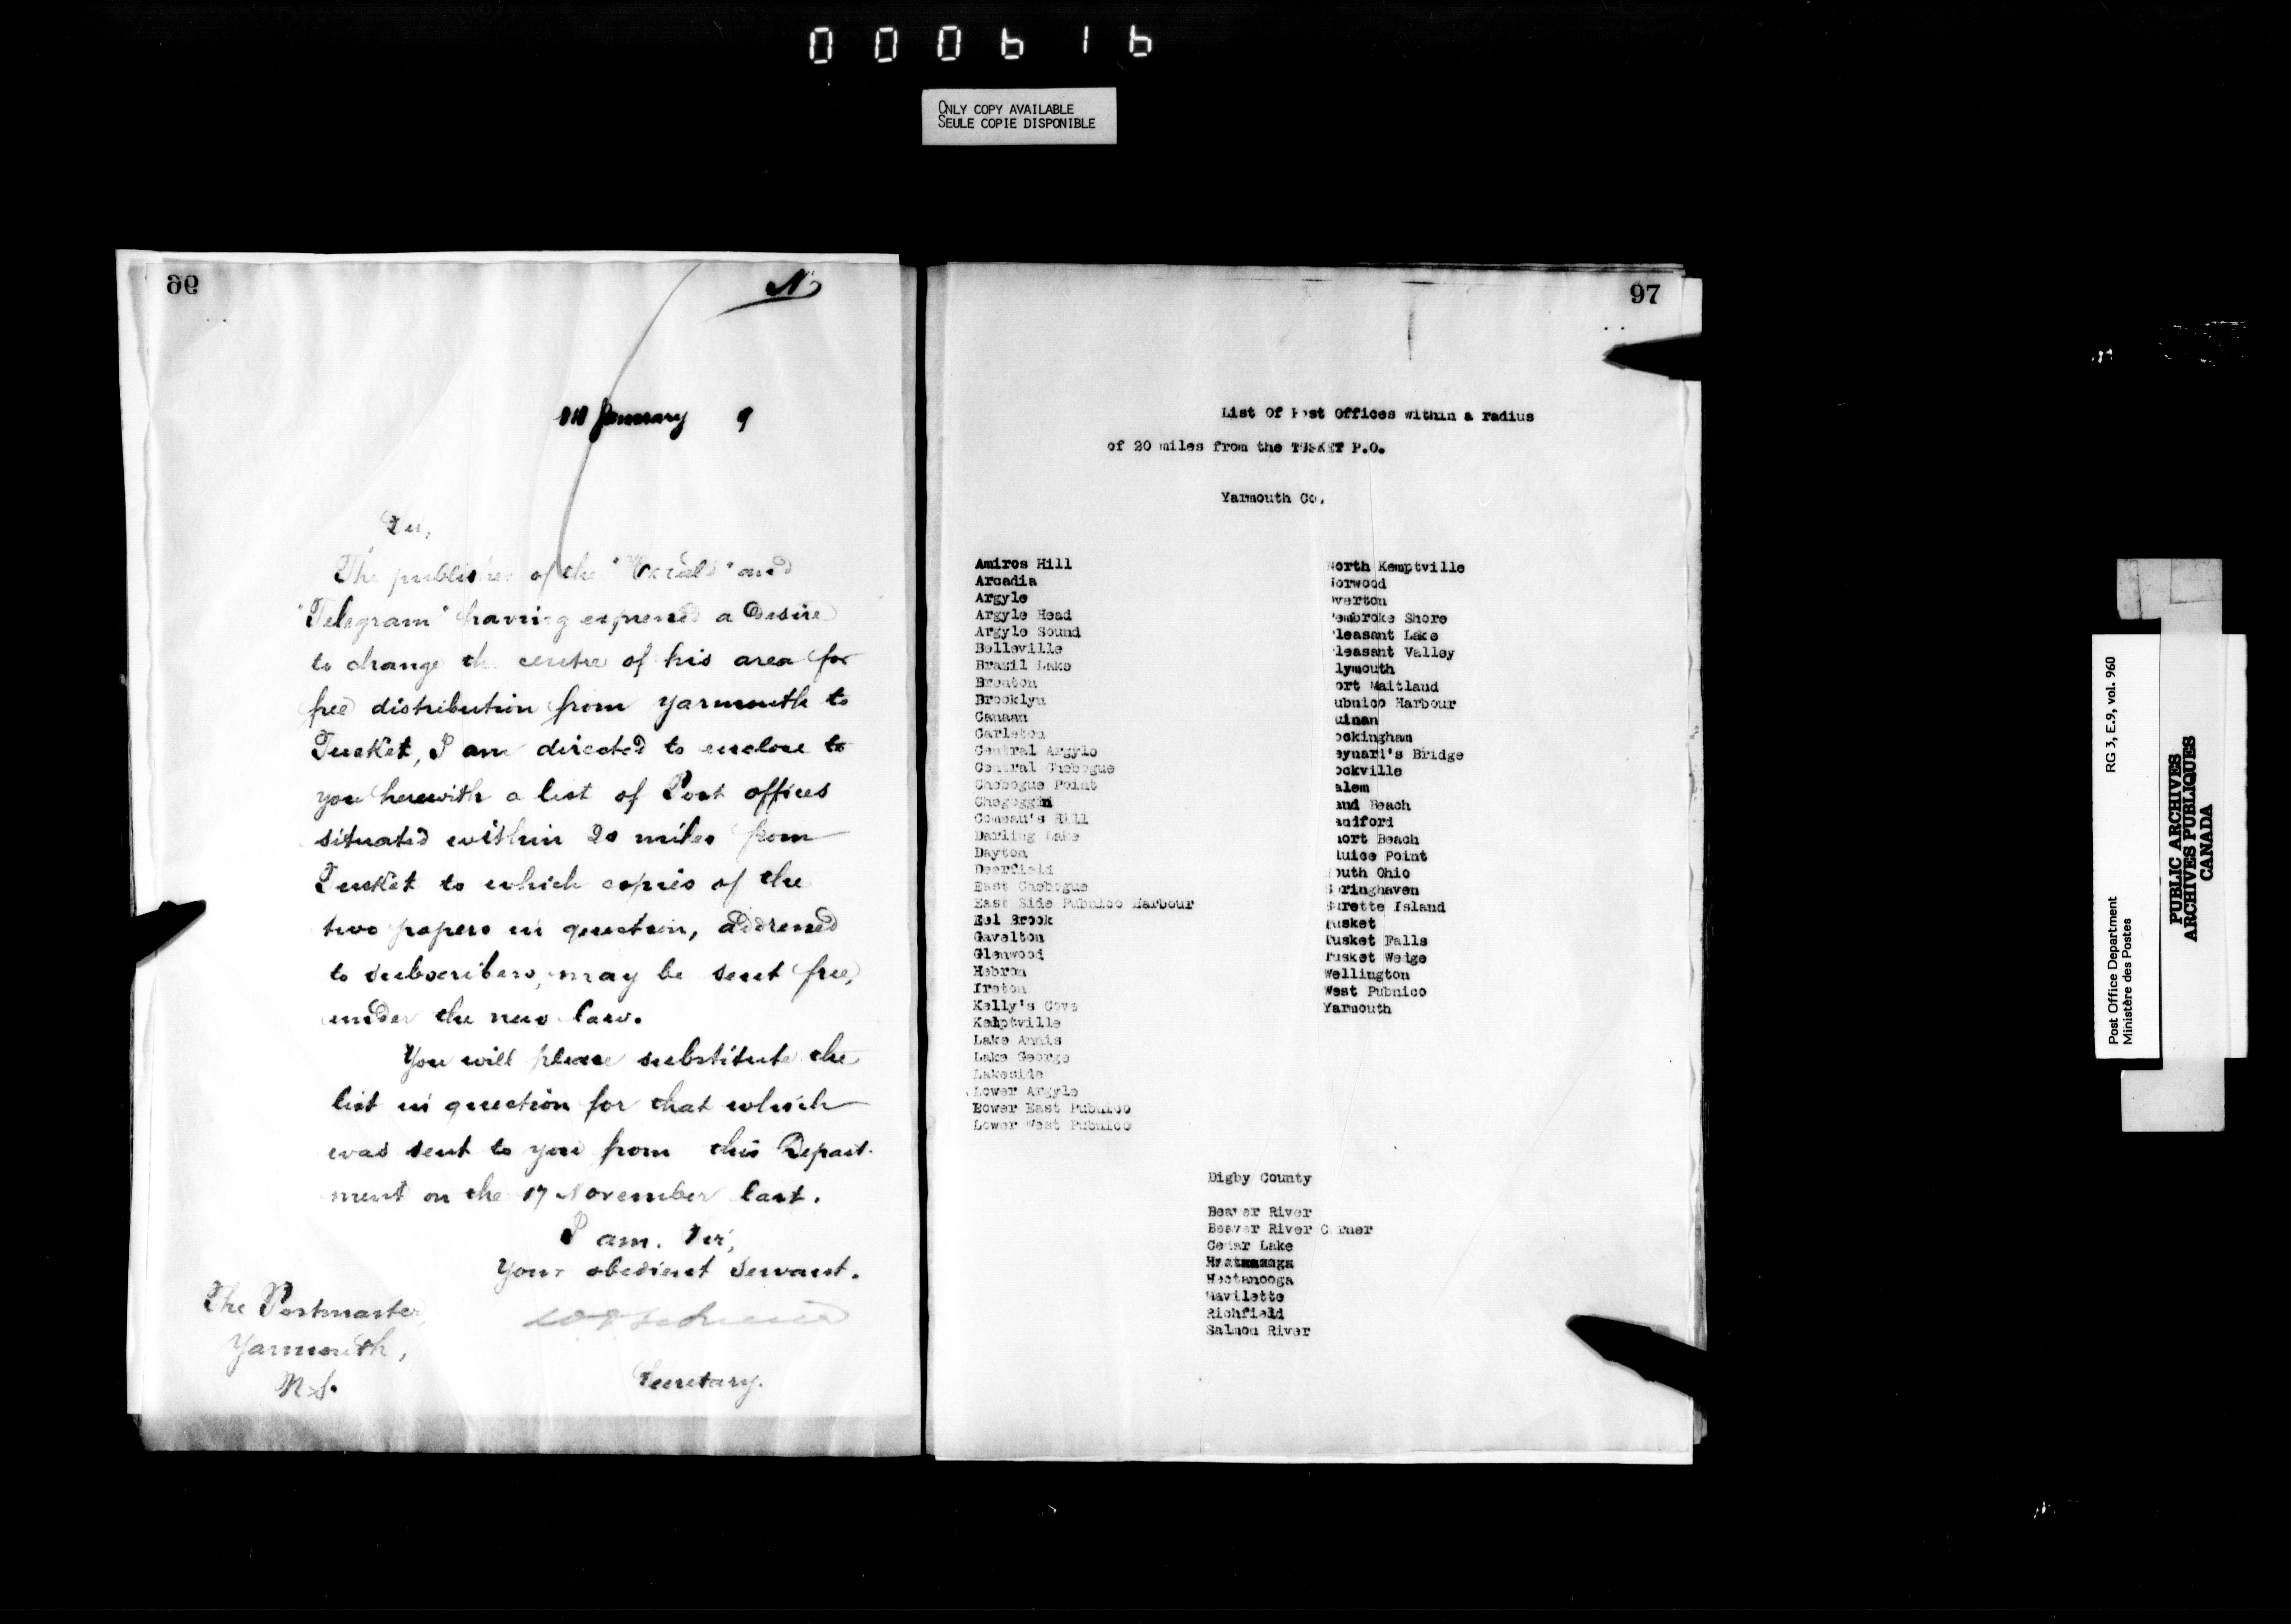 000616
ONLY COPY AVAILABLE
SEULE COPIE DISPONIBLE
96
N
January 9
Sir,
The publisher of the "Herald" and
"Telegram" having expressed a desire
to change the centre of his area for
free distribution from Yarmouth to
Tusket, I am directed to enclose to
you herewith a list of Post offices
situated within 20 miles from
Tusket to which copies of the
two papers in question, addressed
to subscribers, may be sent free,
under the new law.
You will please substitute the
list in question for that which
was sent to you from this Depart-
ment on the 17 November last.
I am, Sir,
Your obedient servant.
The Postmaster,
Yarmouth,
N.S.
Secretary.
97
List Of Post Offices within a radius
of 20 miles from the TUSKET P.O.
Yarmouth Co.
Amiros Hill
Arcadia
Argyle
Argyle Head
Argyle Sound
Belleville
Brazil Lake
Brenton
Brooklyn
Canaan
Carleton
Central Argyle
Central Chebogue
Chebogue Point
Chegoggin
Comeau's Hill
Darling Lake
Dayton
Deerfield
East Chebogue
East Side Pubnico Harbour
Eel Brook
Gavelton
Glenwood
Hebron
Ireton
Kelly's Cove
Kemptville
Lake Annis
Lake George
Lakeside
Lower Argyle
Lower East Pubnico
Lower West Pubnico
North Kemptville
Norwood
Overton
Pembroke Shore
Pleasant Lake
Pleasant Valley
Plymouth
Port Maitland
Pubnico Harbour
Quinan
Rockingham
Reynard's Bridge
Rockville
Salem
Sand Beach
Sandford
Short Beach
Sluice Point
South Ohio
Springhaven
Surette Island
Tusket
Tusket Falls
Tusket Wedge
Wellington
West Pubnico
Yarmouth
Digby County
Beaver River
Beaver River Corner
Cedar Lake
Hectanooga
Mavilette
Richfield
Salmon River
Post Office Department RG 3, E.9, vol. 960
Ministère des Postes
PUBLIC ARCHIVES
ARCHIVES PUBLIQUES
CANADA